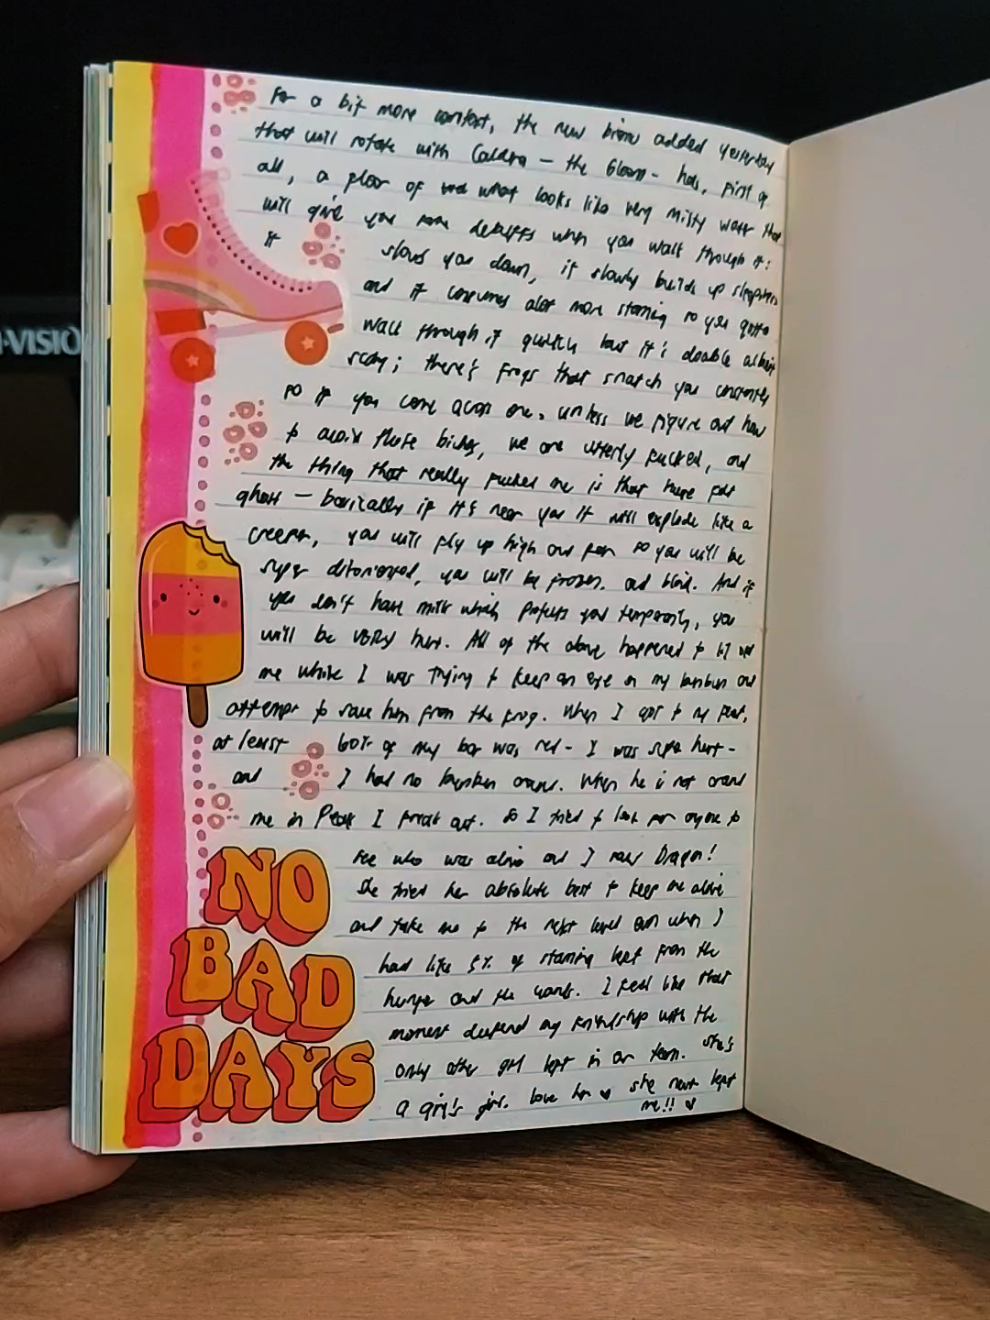 I-VISIO
For a bit more context, the new biome added yesterday
that will rotate with Caldera – the Gloom – has, first of
all, a floor of what looks like very misty water that
will give you some debuffs when you walk through it:
it slows you down, it slowly builds up sleepiness
and it consumes alot more stamina so you gotta
walk through it quickly but it's doable albeit
scary; there's frogs that snatch you constantly
so if you come across one, unless we figure out how
to avoid those bitches, we are utterly fucked, and
the thing that really fucked me is that huge fat
ghost – basically if it's near you it will explode like a
creeper, you will fly up high and far so you will be
super disoriented, you will be frozen. and blind. And if
you don't have milk which protects you temporarily, you
will be VERY hurt. All of the above happened to
me while I was trying to keep an eye on my and
attempt to save him from the frog. When I got to my feet,
at least 60% of my bar was red – I was super hurt –
and I had no around. When he is not around
me in Peak I freak out. So I tried to look for anyone to
see who was alive and I saw Dragon!
She tried her absolute best to keep me alive
and take me to the next level even when I
had like 5% of stamina left from the
hunger and the. I feel like that
moment deepened my friendship with the
only other girl left in our team. She's
a girl's girl. love her ♥ she never left
me!! ♥
NO
BAD
DAYS